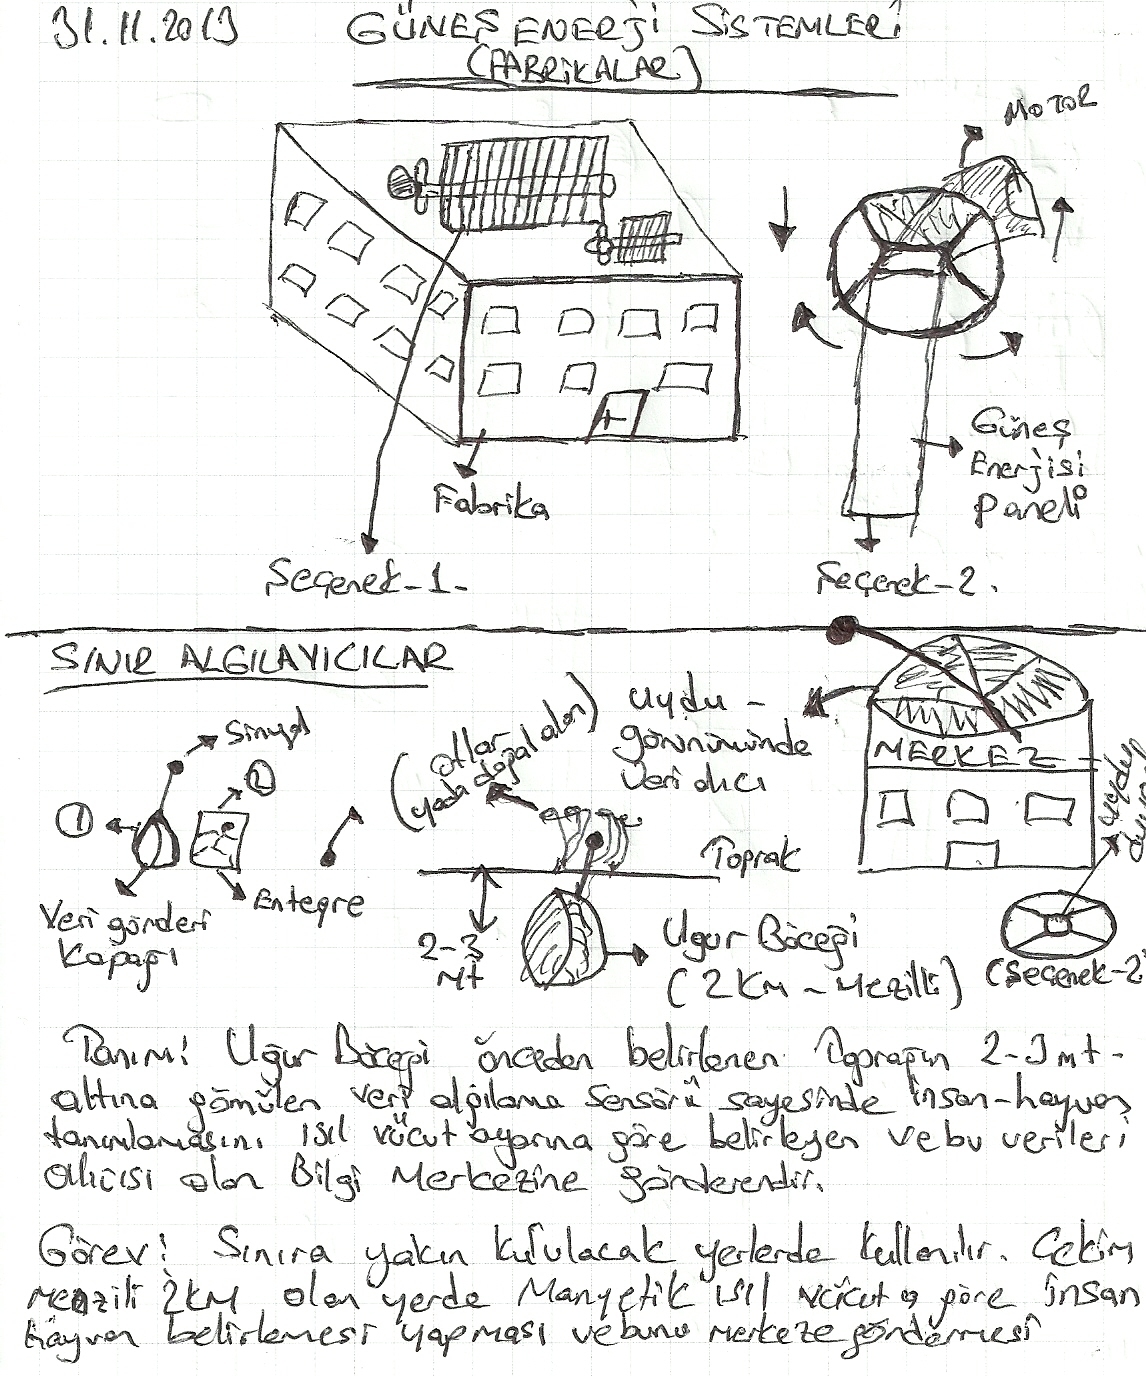 31.11.2013
GÜNEŞ ENERJİ SİSTEMLERİ
(FABRİKALAR)
MOTOR
Güneş
Enerjisi
Paneli
Fabrika
Seçenek-1-
Seçenek-2.
SINIR ALGILAYICILAR
Sinyal
1
2
Veri gönderi
Kapağı
Entegre
(otlar
yada doğal alan)
Uydu -
görünümünde
veri alıcı
MERKEZ
Toprak
2-3
mt
Uğur Böceği
(2 KM - Mezilli)
(Seçenek-2)
Tanım! Uğur Böceği önceden belirlenen Toprağın 2-3 mt-
altına gömülen veri algılama Sensörü sayesinde insan-hayvan
tanımlamasını ısıl vücut ayarına göre belirleyen ve bu verileri
alıcısı olan Bilgi Merkezine gönderendir.
Görev! Sınıra yakın kurulacak yerlerde kullanılır. Çekim
menzili 2KM olan yerde Manyetik ısıl vücuta göre insan
hayvan belirlemesi yapması ve bunu merkeze göndermesi